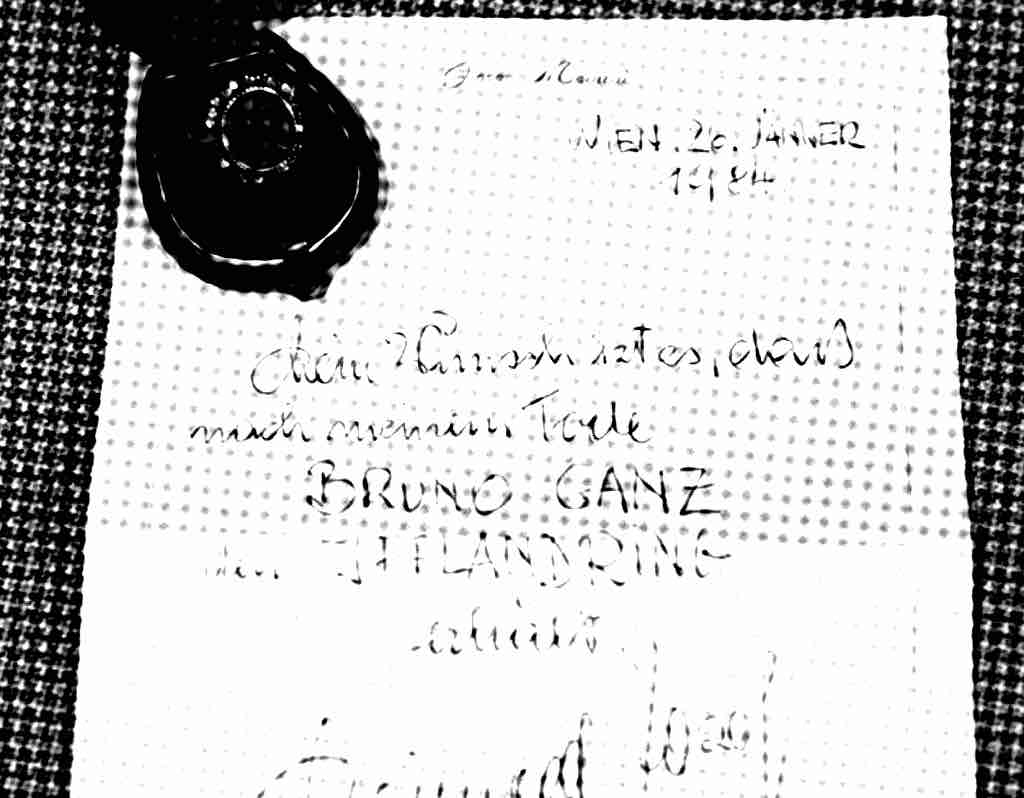 WIEN. 26. JÄNNER
1984
Mein Wunsch ist es, daß
nach meinem Tode
BRUNO GANZ
den IFFLANDRING
erhält.